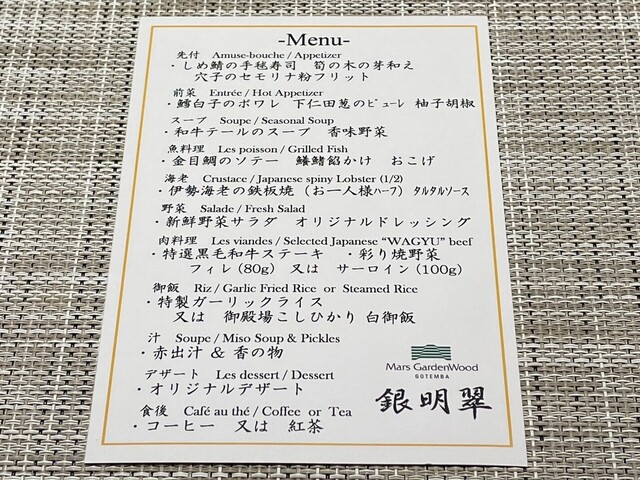 -Menu-
先付 Amuse-bouche / Appetizer
・しめ鯖の手毬寿司 筍の木の芽和え
穴子のセモリナ粉フリット
前菜 Entrée / Hot Appetizer
・鱈白子のポワレ 下仁田葱のピューレ 柚子胡椒
スープ Soupe / Seasonal Soup
・和牛テールのスープ 香味野菜
魚料理 Les poisson / Grilled Fish
・金目鯛のソテー 鱶鰭餡かけ おこげ
海老 Crustace / Japanese spiny Lobster (1/2)
・伊勢海老の鉄板焼 (お一人様ハーフ) タルタルソース
野菜 Salade / Fresh Salad
・新鮮野菜サラダ オリジナルドレッシング
肉料理 Les viandes / Selected Japanese "WAGYU" beef
・特選黒毛和牛ステーキ ・彩り焼野菜
フィレ (80g) 又は サーロイン (100g)
御飯 Riz / Garlic Fried Rice or Steamed Rice
・特製ガーリックライス
又は 御殿場こしひかり 白御飯
汁 Soupe / Miso Soup & Pickles
・赤出汁 & 香の物
デザート Les dessert / Dessert
・オリジナルデザート
食後 Café au thé / Coffee or Tea
・コーヒー 又は 紅茶
Mars GardenWood
GOTEMBA
銀明翠